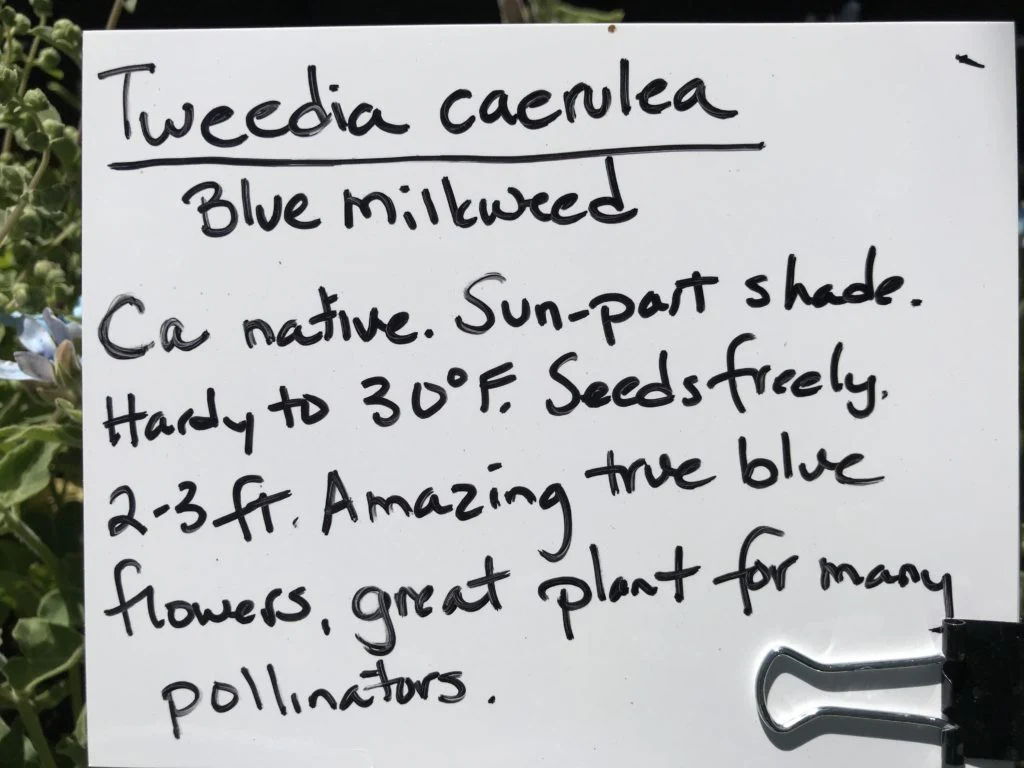 Tweedia caerulea
Blue milkweed
Ca native. Sun-part shade.
Hardy to 30°F. Seeds freely.
2-3 ft. Amazing true blue
flowers, great plant for many
pollinators.